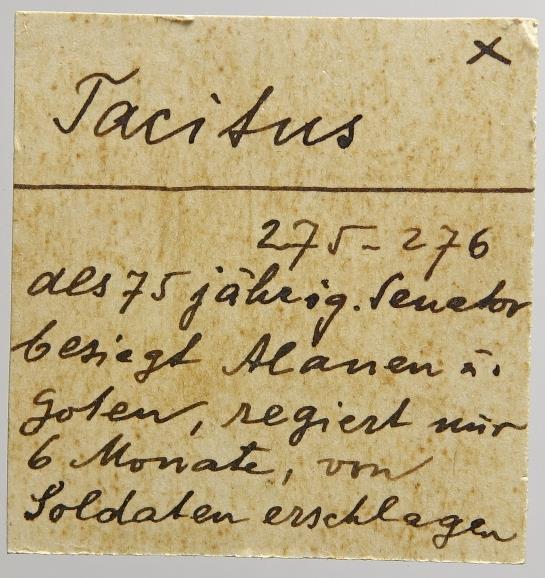 x
Tacitus
275-276
als 75 jährig. Senator
besiegt Alanen u.
Goten, regiert nur
6 Monate, von
Soldaten erschlagen